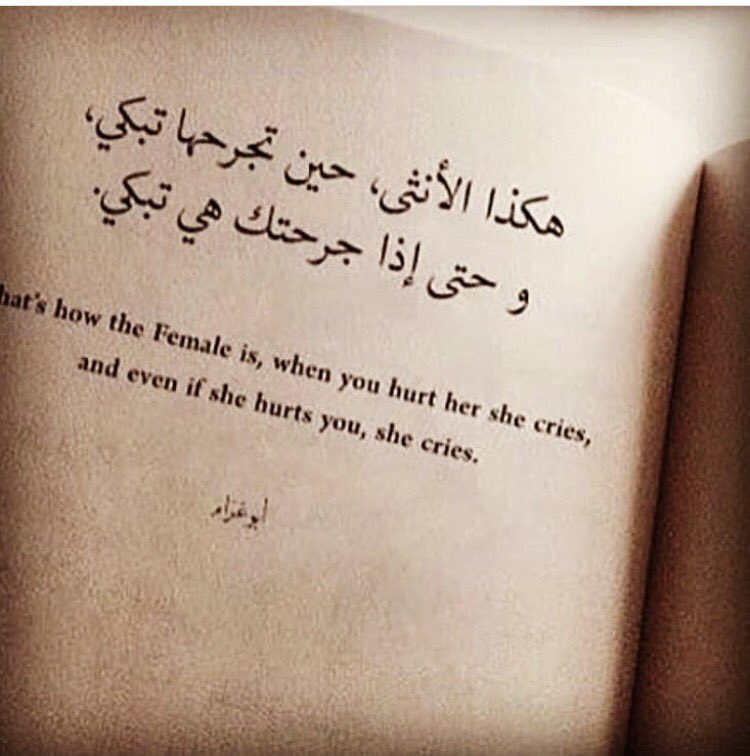 هكذا الأنثى، حين تجرحها تبكي،
و حتى إذا جرحتك هي تبكي.
hat's how the Female is, when you hurt her she cries,
and even if she hurts you, she cries.
ابو غرام